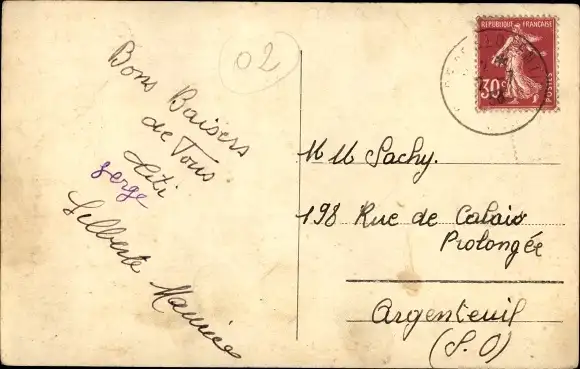 02
Bons Baisers
de Tous
Titi
Serge
Gilberte Maurice
REPUBLIQUE FRANÇAISE
30c
POSTES
M M Sachy.
198 Rue de Calais
Prolongée
Argenteuil
(S. O)